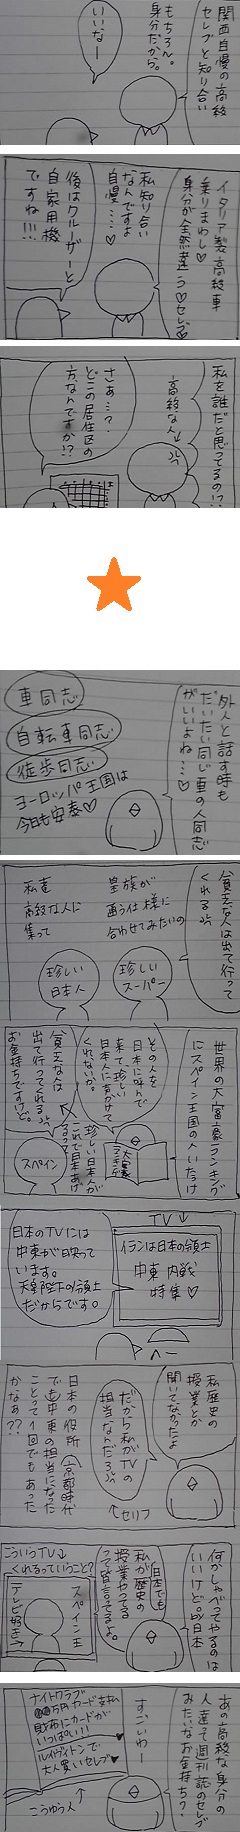 関西自慢の高級
セレブと知り合い
もちろん。
身分だから。
いいなー
イタリア製高級車
乗りまわし♡
身分が全然違う♡セレブ
私知り合い
なんですよ
自慢……♡
後はクルーザーと
自家用機
ですね!!!
私を誰だと思ってるの!?
高級な人
さぁ…?
どこの居住区の
方なんですか!?
外人と話す時も
だいたい同じ車の人同志
がいいよね……♡
車同志
自転車同志
徒歩同志
ヨーロッパ王国は
今日も安泰♡
貧乏な人は出て行って
くれる
皇族が
通う仕様に
合わせてみたいの
私達
高級な人に
集って
珍しい
スーパー
珍しい
日本人
世界の大富豪ランキング
にスペイン王国の人いたっけ
その人を
日本に呼んで
来て珍しい
日本人にあわせて
くれないか。
大富豪
ランキング
珍しい日本人が
これで日本あげ
るって
貧乏な人は
出て行ってくれる
お金持ちですけど。
スペイン
TV↓
イランは日本の領土
中東内戦
特集♡
日本のTVには
中東が映って
います。
天皇陛下の領土
だからです。
私歴史の
授業とか
聞いてなかったよ
だから私がTVの
担当なんだろ
↑セリフ
日本の役所(京都時代
でも中東の担当になった
ことって1回でもあった
かなぁ??
何かしゃべってやるのは
いいけど。日本
日本でも
私が歴史の
授業やってる
って皆言ってるよ。
こういうTV↓
くれるっていうこと?
スペイン王
テレビ好き→
あの高級な身分の
人達って週刊誌のセレブ
みたいなお金持ち?
すごいわー
ナイトクラブ
万円カード支払
財布にカードが
いっぱい!!!
ルイヴィトンで
大人買いセレブ♥
こうゆう人↑